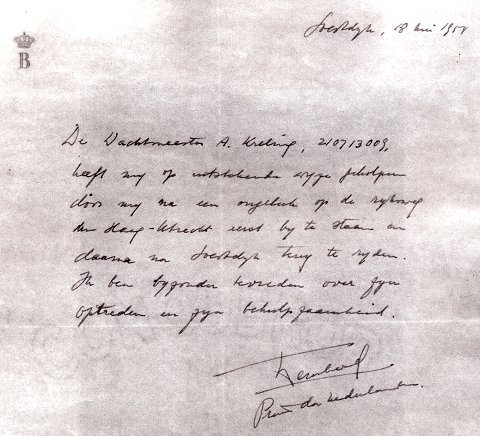 B
Soestdyk, 18 Mei 195
De Wachtmeester A. Kreling, 210713009,
heeft my op uitstekende wyze geholpen
door my na een ongeluk op de ryksweg
den Haag-Utrecht eerst by te staan en
daarna na Soestdyk terug te ryden.
Ik ben byzonder tevreden over zyn
optreden en zyn behulpzaamheid.
Bernhard
Prins der Nederlanden.